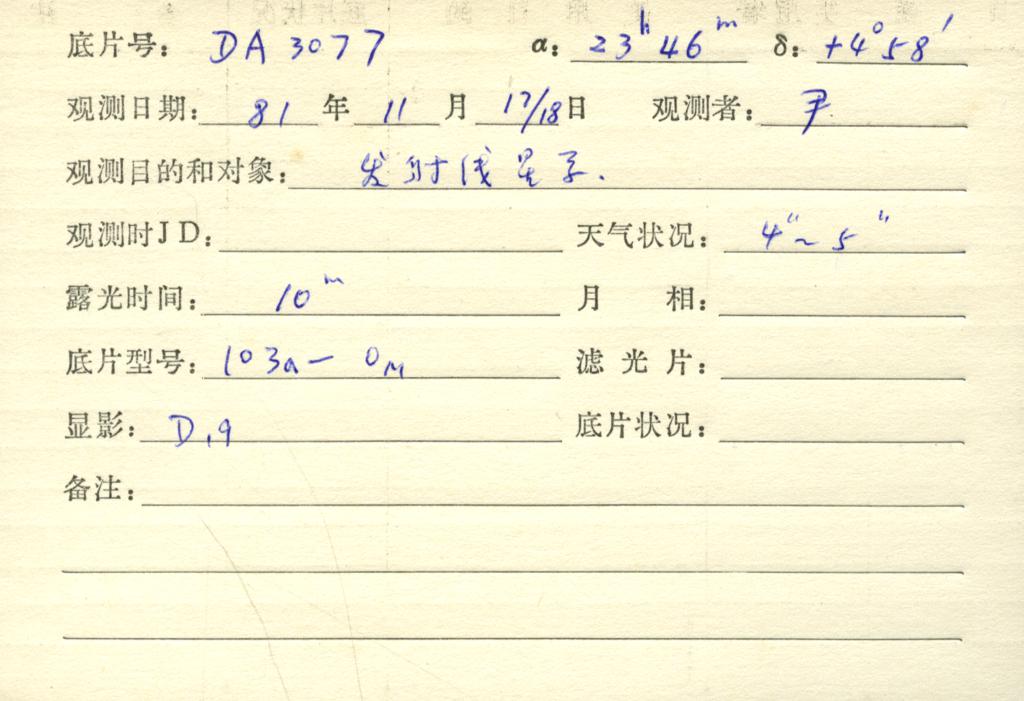 底片号: DA 3077 α: 23ʰ 46ᵐ δ: +4° 58′
观测日期: 81 年 11 月 17/18 日 观测者: 尹
观测目的和对象: 发射线星系.
观测时JD: 天气状况: 4″~5″
露光时间: 10ᵐ 月 相:
底片型号: 103a-O 滤 光 片:
显影: D.19 底片状况:
备注: